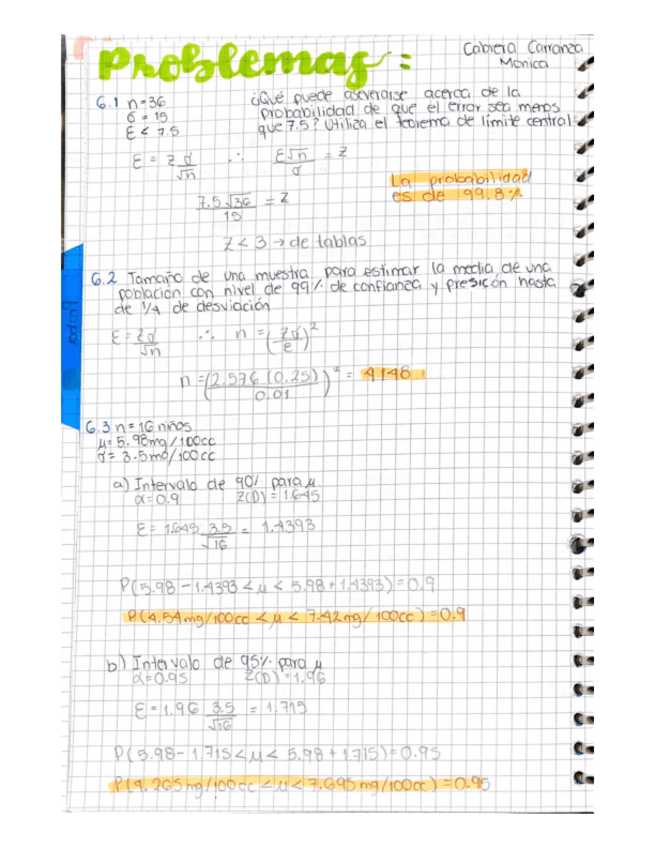 Problemas:
Cabrera Carranza
Monica
6.1 n=36
σ = 15
ε < 7.5
¿Qué puede aseverarse acerca de la
probabilidad de que el error sea menos
que 7.5? Utiliza el teorema de límite central.
ε = z σ/√n ∴ ε√n/σ = z
7.5√36/15 = z
La probabilidad
es de 99.8%
z < 3 → de tablas
6.2 Tamaño de una muestra para estimar la media de una
población con nivel de 99% de confianza y presición hasta
de 1/4 de desviación
ε = zσ/√n ∴ n = (zσ/ε)²
n = (2.576 (0.25)/0.01)² = 4148
6.3 n = 16 niños
μ = 5.98mg/100cc
σ = 3.5mg/100cc
a) Intervalo de 90% para μ
α=0.9 Z(D) = 1.645
ε = 1.645 3.5/√16 = 1.4393
P(5.98 - 1.4393 < μ < 5.98 + 1.4393) = 0.9
P(4.54mg/100cc < μ < 7.42mg/100cc) = 0.9
b) Intervalo de 95% para μ
α=0.95 Z(D) = 1.96
ε = 1.96 3.5/√16 = 1.715
P(5.98 - 1.715 < μ < 5.98 + 1.715) = 0.95
P(4.265mg/100cc < μ < 7.695mg/100cc) = 0.95